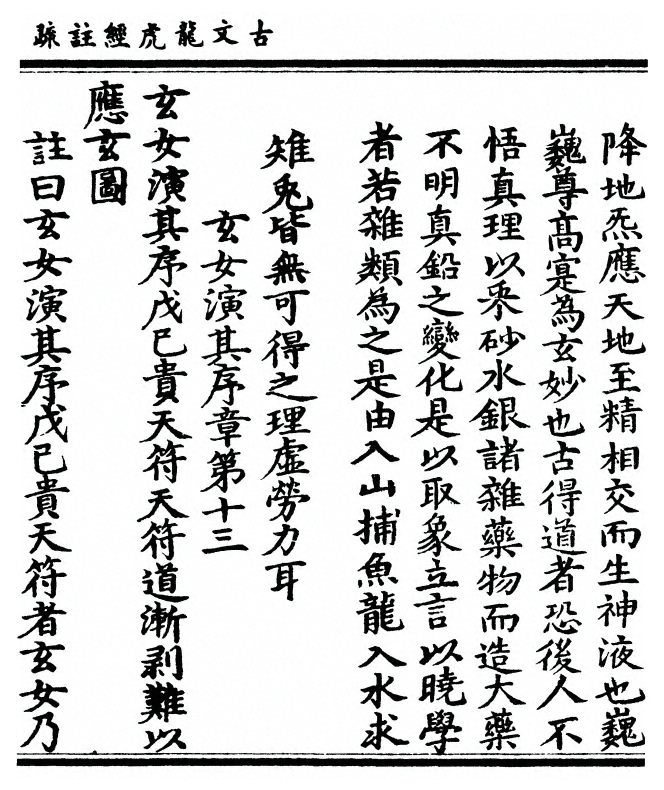 古文龍虎經註疏
降地炁應天地至精相交而生神液也巍
巍尊高寔為玄妙也古得道者恐後人不
悟真理以汞砂水銀諸雜藥物而造大藥
不明真鉛之變化是以取象立言以曉學
者若雜類為之是由入山捕魚龍入水求
雉兎皆無可得之理虛勞力耳
玄女演其序章第十三
玄女演其序戊己貴天符天符道漸剥難以
應玄圖
註曰玄女演其序戊己貴天符者玄女乃